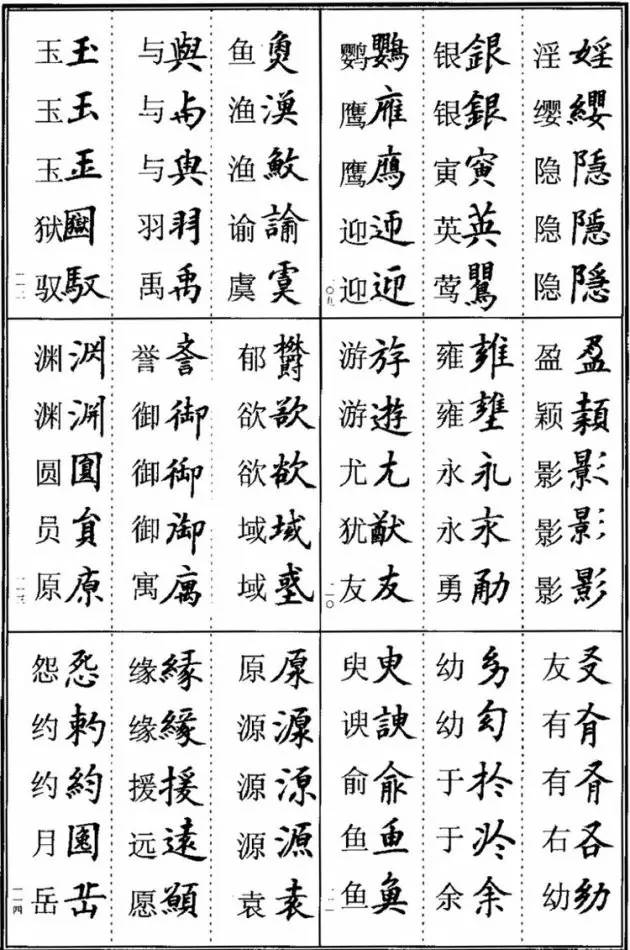 淫婬 缨纓 隐隱 隐隱 隐隱
银銀 银銀 寅寅 英英 莺鸎
鹦鸚 鹰鷹 鹰鷹 迎迎 迎迎
一〇九
盈盈 颖穎 影影 影影 影影
雍雍 雍壅 永永 永永 勇勈
游斿 游遊 尤尤 犹猷 友友
一一〇
友友 有有 有有 右右 幼幼
幼幼 幼幼 于於 于於 余余
臾臾 谀諛 俞俞 鱼魚 鱼魚
一一一
鱼魚 渔漁 渔䱷 谕諭 虞虞
与與 与与 与與 羽羽 禹禹
玉玉 玉玉 玉玉 狱圝 驭馭
一一二
郁欝 欲欲 欲欲 域域 域域
誉誉 御御 御御 御御 寓庽
渊渊 渊淵 圆圓 员員 原原
一一三
原原 源源 源源 源源 袁袁
缘緣 缘緣 援援 远遠 愿願
怨怨 约約 约約 月囝 岳岳
一一四